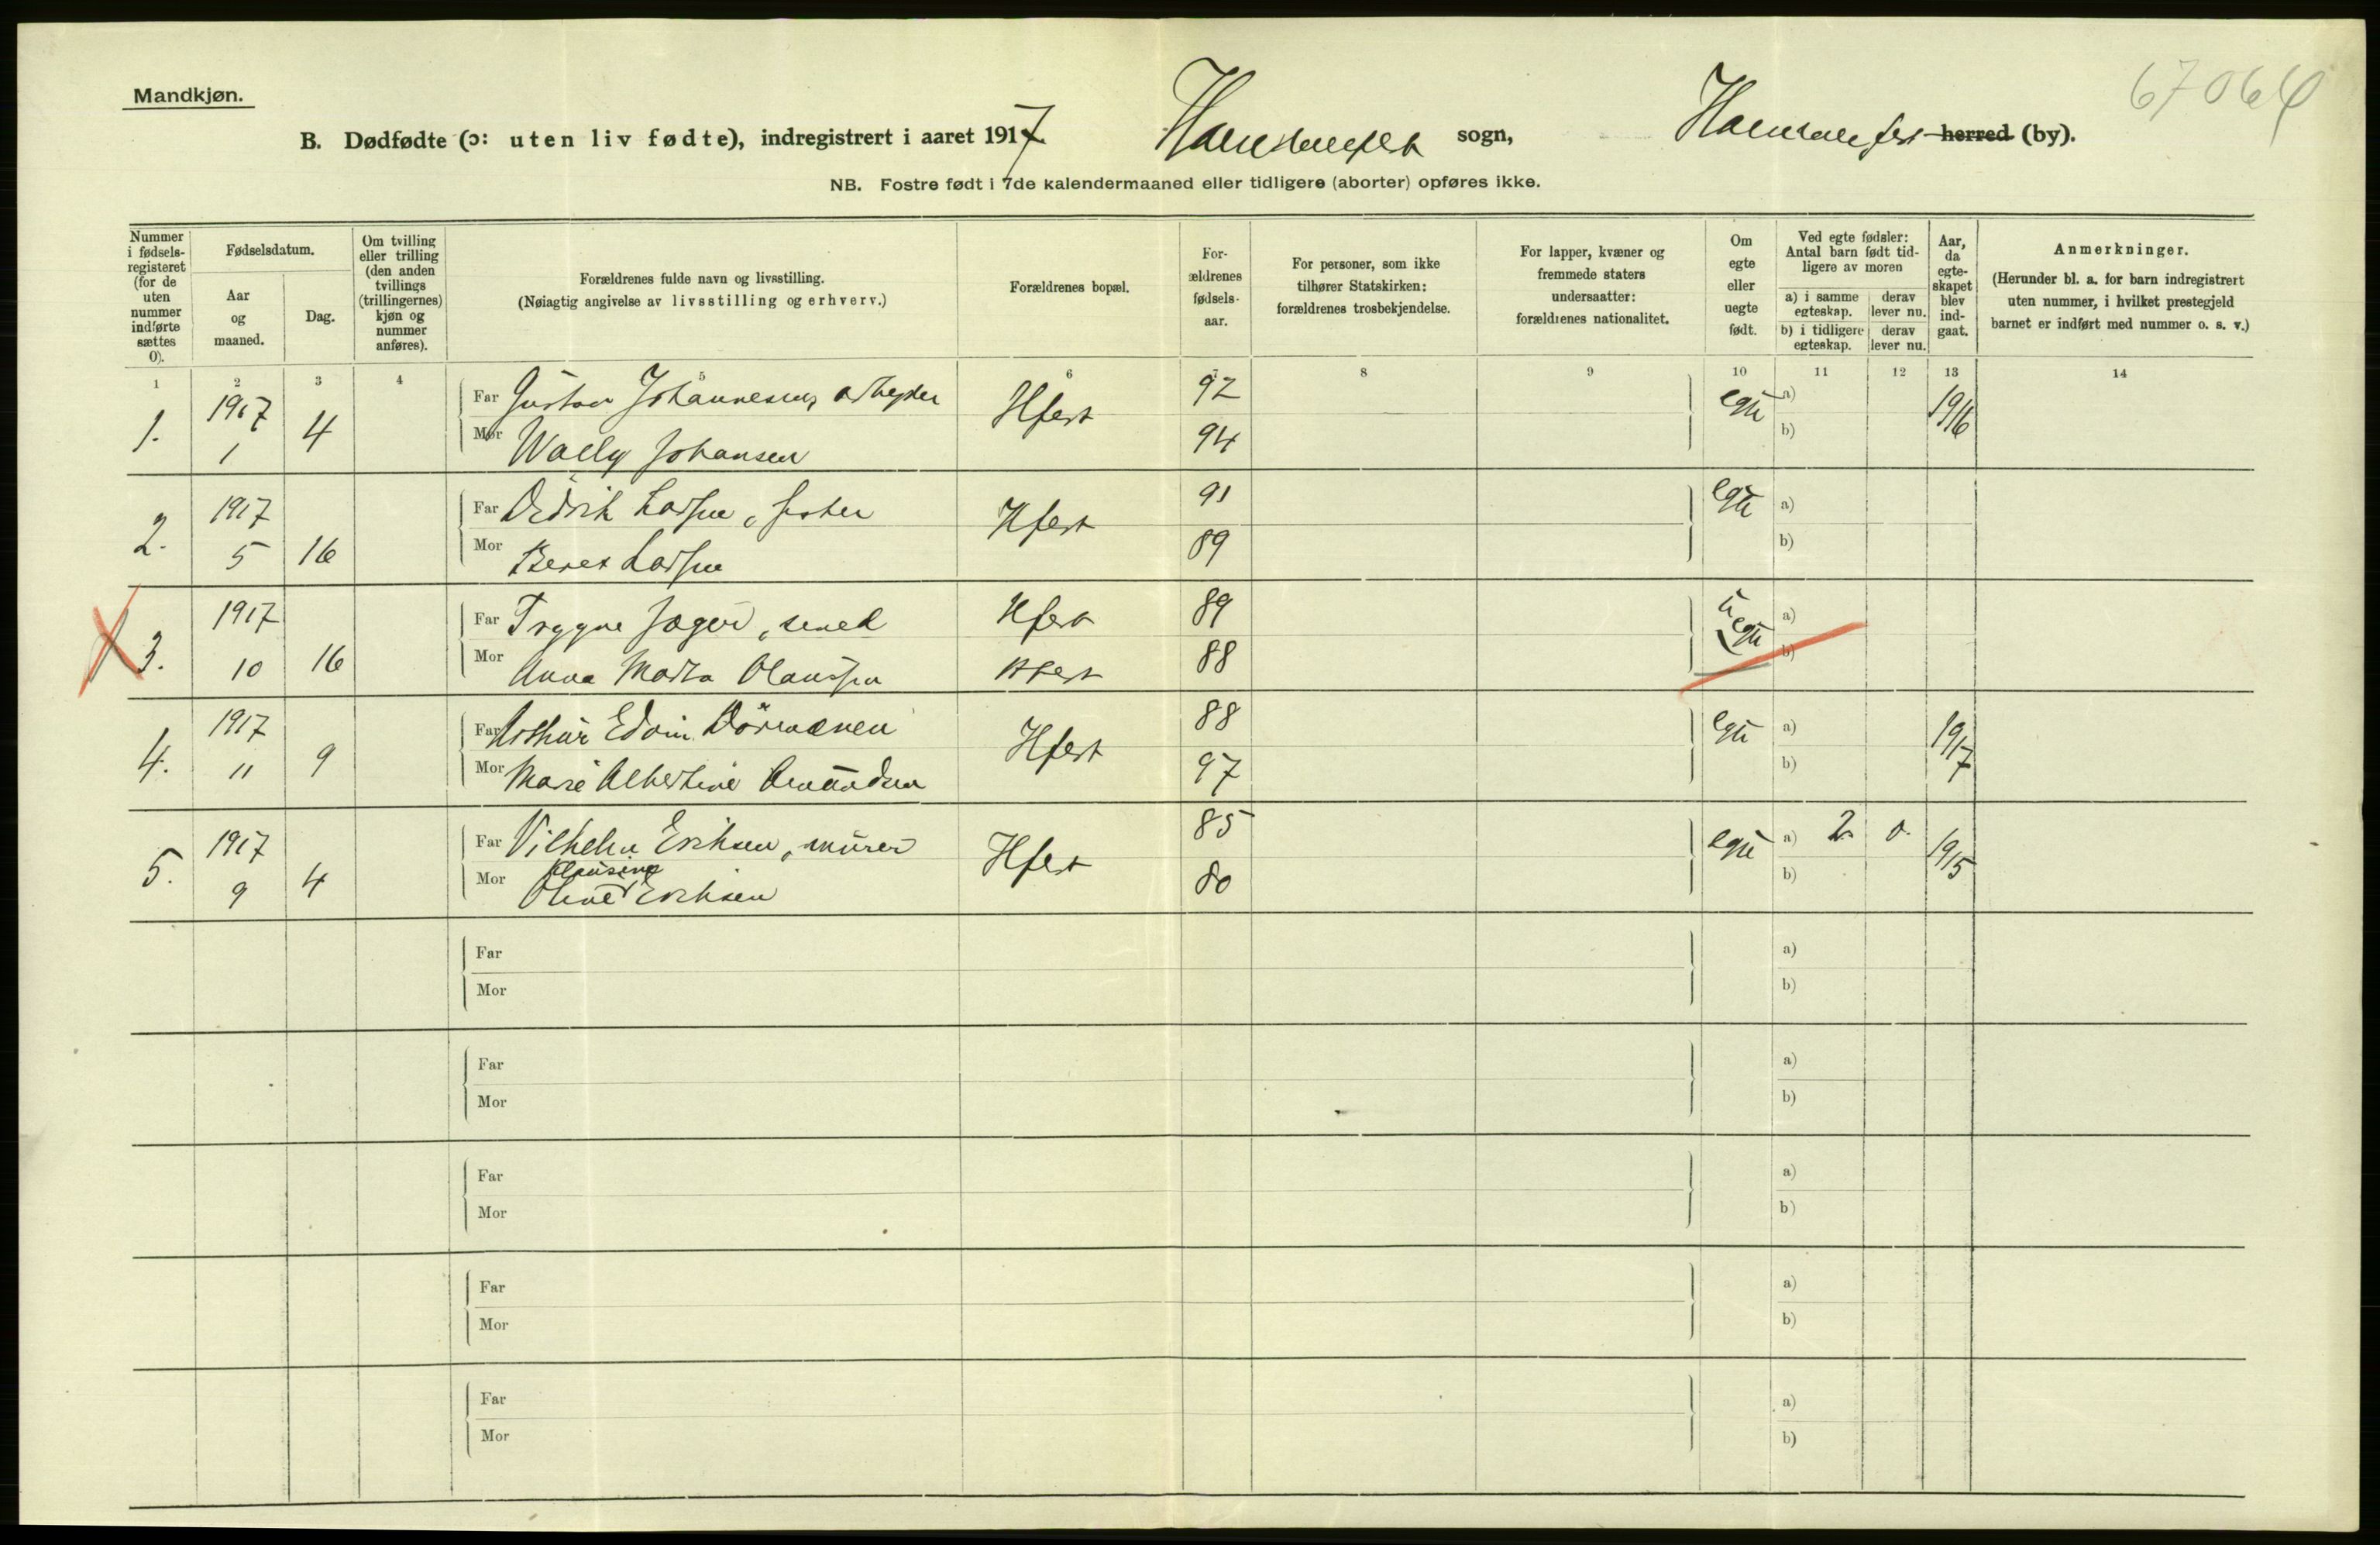 67064
Mandkjøn.
B. Dødfødte (ɔ: uten liv fødte), indregistrert i aaret 1917 Hammerfest sogn, Hammerfest herred (by).
NB. Fostre født i 7de kalendermaaned eller tidligere (aborter) opføres ikke.
Nummer i fødsels-registeret (for de uten nummer indførte sættes 0).
Fødselsdatum.
Aar og maaned.
Dag.
Om tvilling eller trilling (den anden tvillings (trillingernes) kjøn og nummer anføres).
Forældrenes fulde navn og livsstilling.
(Nøiagtig angivelse av livsstilling og erhverv.)
Forældrenes bopæl.
For-ældrenes fødsels-aar.
For personer, som ikke tilhører Statskirken: forældrenes trosbekjendelse.
For lapper, kvæner og fremmede staters undersaatter: forældrenes nationalitet.
Om egte eller uegte født.
Ved egte fødsler: Antal barn født tid-ligere av moren
a) i samme egteskap.
derav lever nu.
b) i tidligere egteskap.
derav lever nu.
Aar, da egte-skapet blev ind-gaat.
Anmerkninger.
(Herunder bl. a. for barn indregistrert uten nummer, i hvilket prestegjeld barnet er indført med nummer o. s. v.)
1 2 3 4 5 6 7 8 9 10 11 12 13 14
1. 1917 1 4 Far Gustav Johannesen, arbeider Hfest 92 egte a) 1916
Mor Wally Johansen 94 b)
2. 1917 5 16 Far Didrik Larsen, fisker Hfest 91 egte a)
Mor Beret Larsen 89 b)
3. 1917 10 16 Far Trygve Hfest 89 uegte a)
Mor Anna Marta Olaussen Hfest 88 b)
4. 1917 11 9 Far Arthur Edvin Hfest 88 egte a) 1917
Mor Marie Albertine Amundsen 97 b)
5. 1917 9 4 Far Vilhelm Eriksen, murer Hfest 85 egte a) 2 0 1915
Klausine
Mor Oline Eriksen 80 b)
Far a)
Mor b)
Far a)
Mor b)
Far a)
Mor b)
Far a)
Mor b)
Far a)
Mor b)